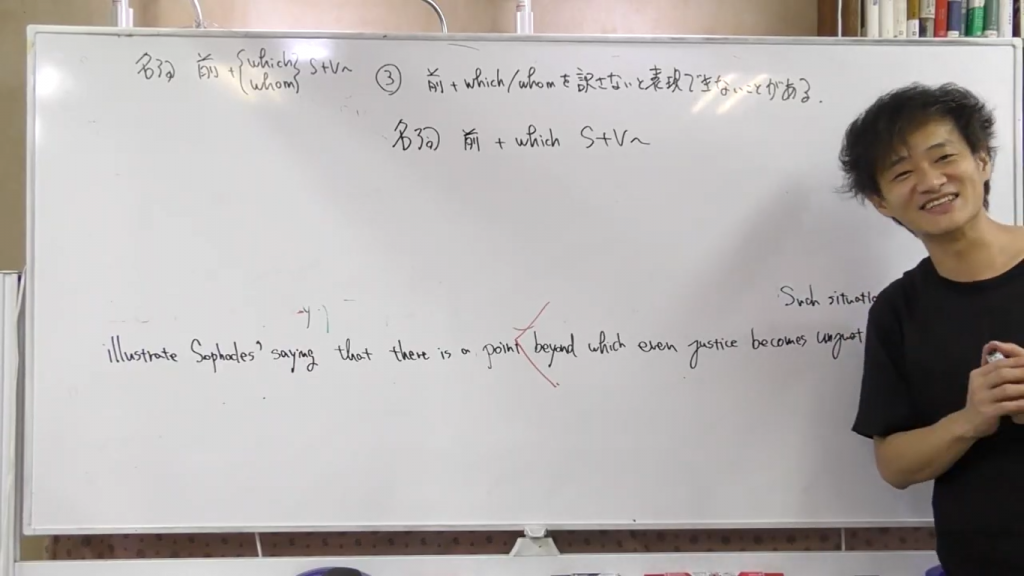 名詞 前+{which/whom} S+V~ ③ 前+which/whomを訳さないと表現できないことがある.
名詞 前 + which S+V~
Such situatio
illustrate Sophocles' saying that there is a point beyond which even justice becomes unjust